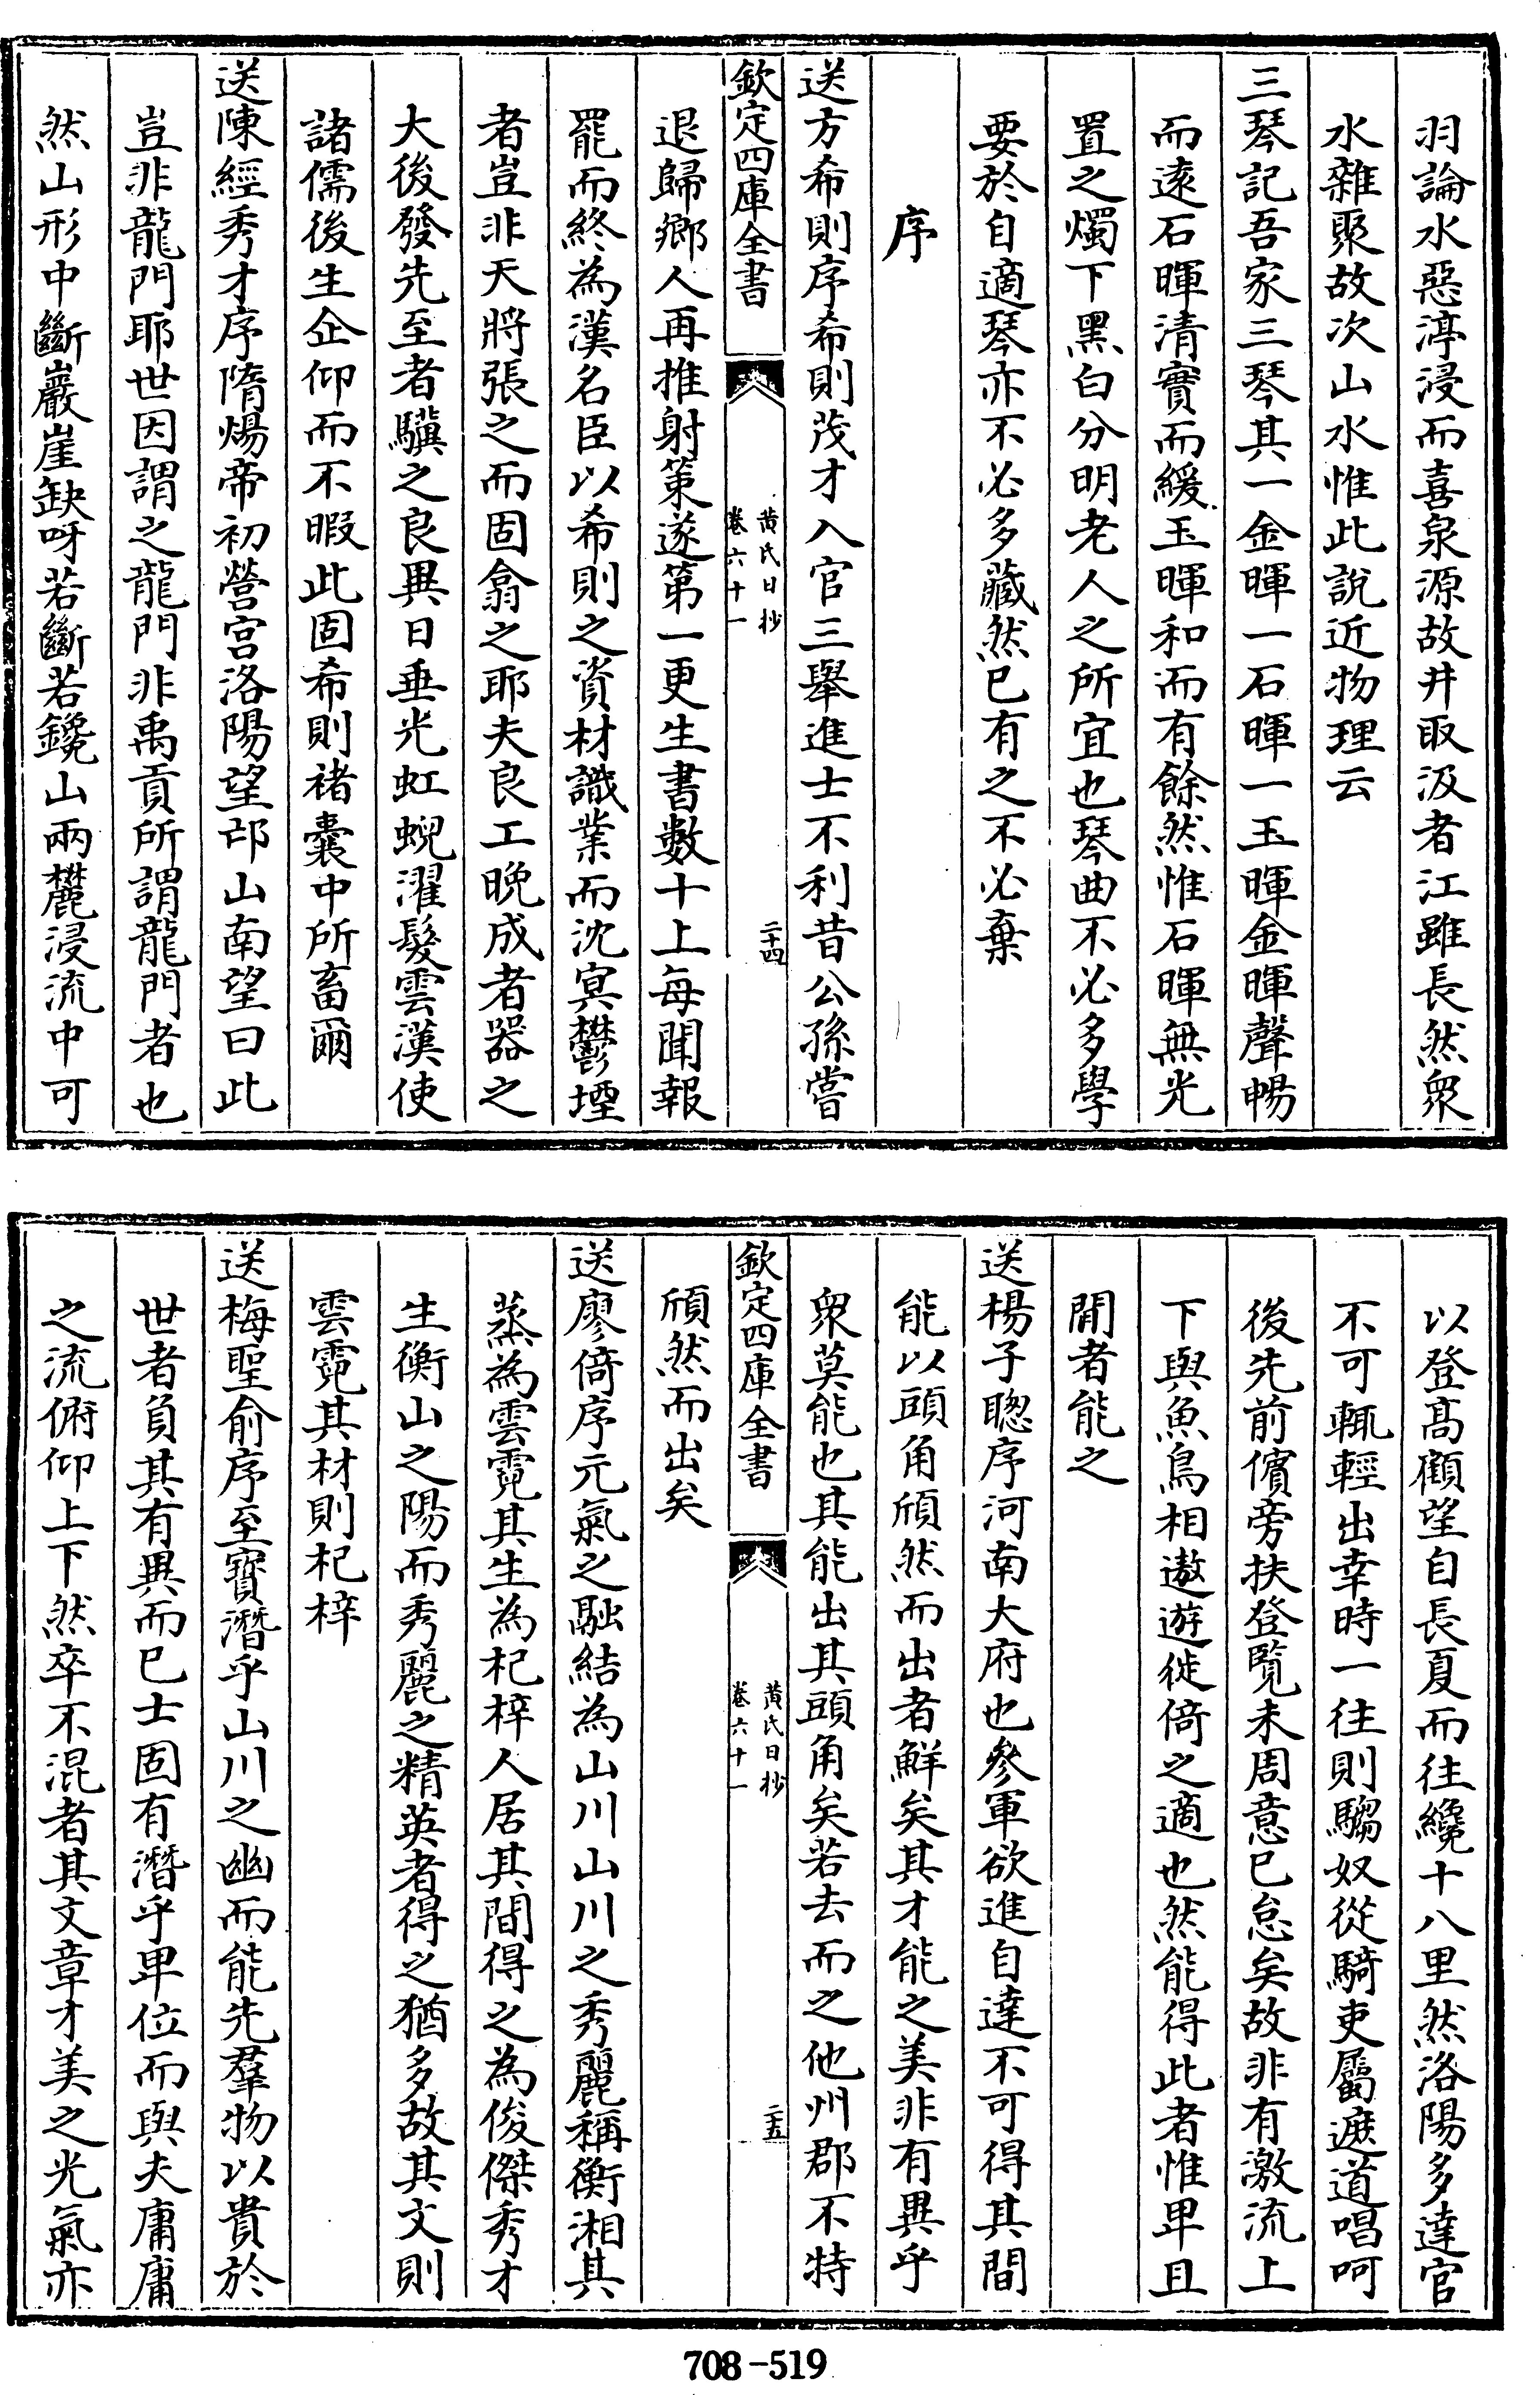 羽論水惡渟浸而喜泉源故井取汲者江雖長然衆
水雜聚故次山水惟此說近物理云
三琴記吾家三琴其一金暉一石暉一玉暉金暉聲暢
而逺石暉清實而緩玉暉和而有餘然惟石暉無光
置之燭下黑白分明老人之所宜也琴曲不必多學
要於自適琴亦不必多藏然已有之不必棄
序
送方希則序希則茂才入官三舉進士不利昔公孫嘗
欽定四庫全書
黄氏日抄
卷六十一
二十四
退歸鄉人再推射策遂第一更生書數十上每聞報
罷而終為漢名臣以希則之資材識業而沈冥鬱堙
者豈非天將張之而固翕之耶夫良工晚成者器之
大後發先至者驥之良異日垂光虹蜺濯髮雲漢使
諸儒後生企仰而不暇此固希則褚囊中所畜爾
送陳經秀才序隋煬帝初營宫洛陽望邙山南望曰此
豈非龍門耶世因謂之龍門非禹貢所謂龍門者也
然山形中斷巖崖缺呀若斷若鑱山兩麓浸流中可
以登髙顧望自長夏而往纔十八里然洛陽多達官
不可輒輕出幸時一往則騶奴從騎吏屬遮道唱呵
後先前儐旁扶登覧未周意已怠矣故非有激流上
下與魚鳥相遨遊徙倚之適也然能得此者惟卑且
閒者能之
送楊子聰序河南大府也參軍欲進自達不可得其間
能以頭角頎然而出者鮮矣其才能之美非有異乎
衆莫能也其能出其頭角矣若去而之他州郡不特
欽定四庫全書
黄氏日抄
卷六十一
二十五
頎然而出矣
送廖倚序元氣之融結為山川山川之秀麗稱衡湘其
蒸為雲霓其生為杞梓人居其間得之為俊傑秀才
生衡山之陽而秀麗之精英者得之猶多故其文則
雲霓其材則杞梓
送梅聖俞序至寶潛乎山川之幽而能先羣物以貴於
世者負其有異而已士固有潛乎卑位而與夫庸庸
之流俯仰上下然卒不混者其文章才美之光氣亦
708-519